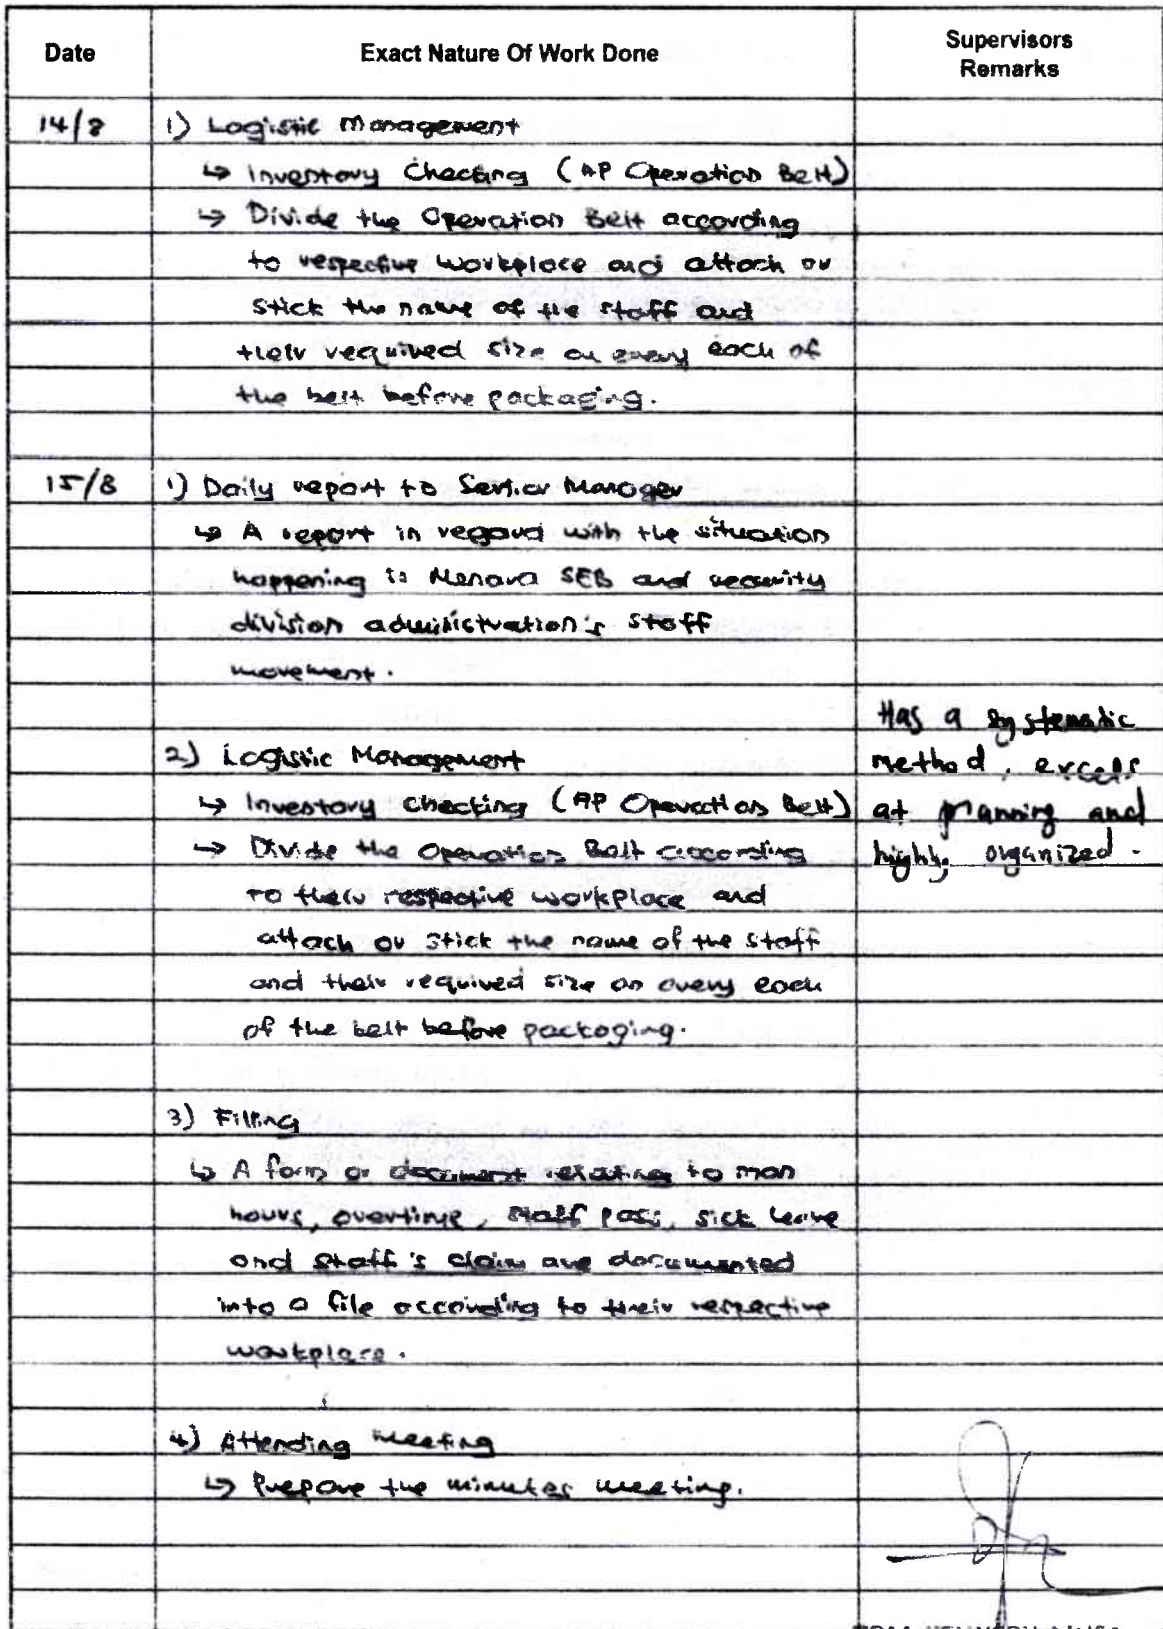 Date Exact Nature Of Work Done Supervisors
Remarks
14/8 1) Logistic Management
↳ Inventory Checking (AP Operation Belt)
↳ Divide the Operation Belt according
to respective workplace and attach or
stick the name of the staff and
their required size on every each of
the belt before packaging.
15/8 1) Daily report to Senior Manager
↳ A report in regard with the situation
happening in Menara SEB and security
division administration's staff
movement.
2) Logistic Management
↳ Inventory checking (AP Operation Belt)
↳ Divide the Operation Belt according
to their respective workplace and
attach or stick the name of the staff
and their required size on every each
of the belt before packaging.
3) Filling
↳ A form or document relating to man
hours, overtime, staff pass, sick leave
and staff's claim are documented
into a file according to their respective
workplace.
4) Attending meeting
↳ Prepare the minutes meeting.
Has a systematic
method, excels
at planning and
highly organized.